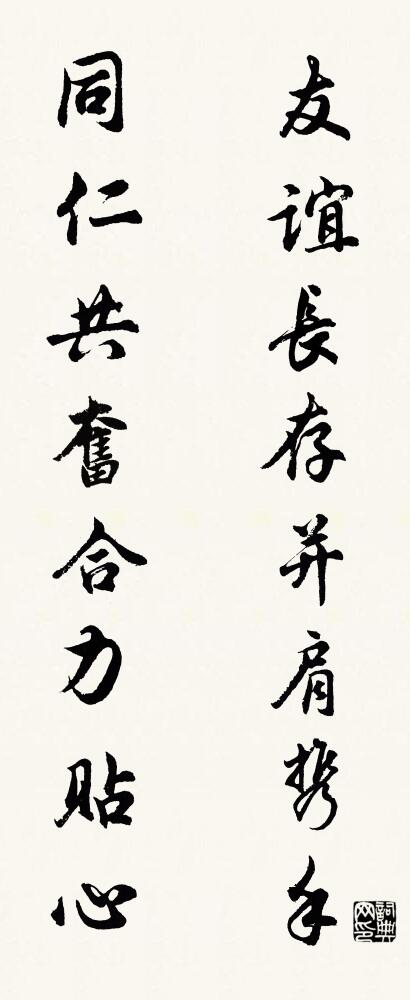 友誼長存并肩携手
同仁共奮合力貼心
詞典网印